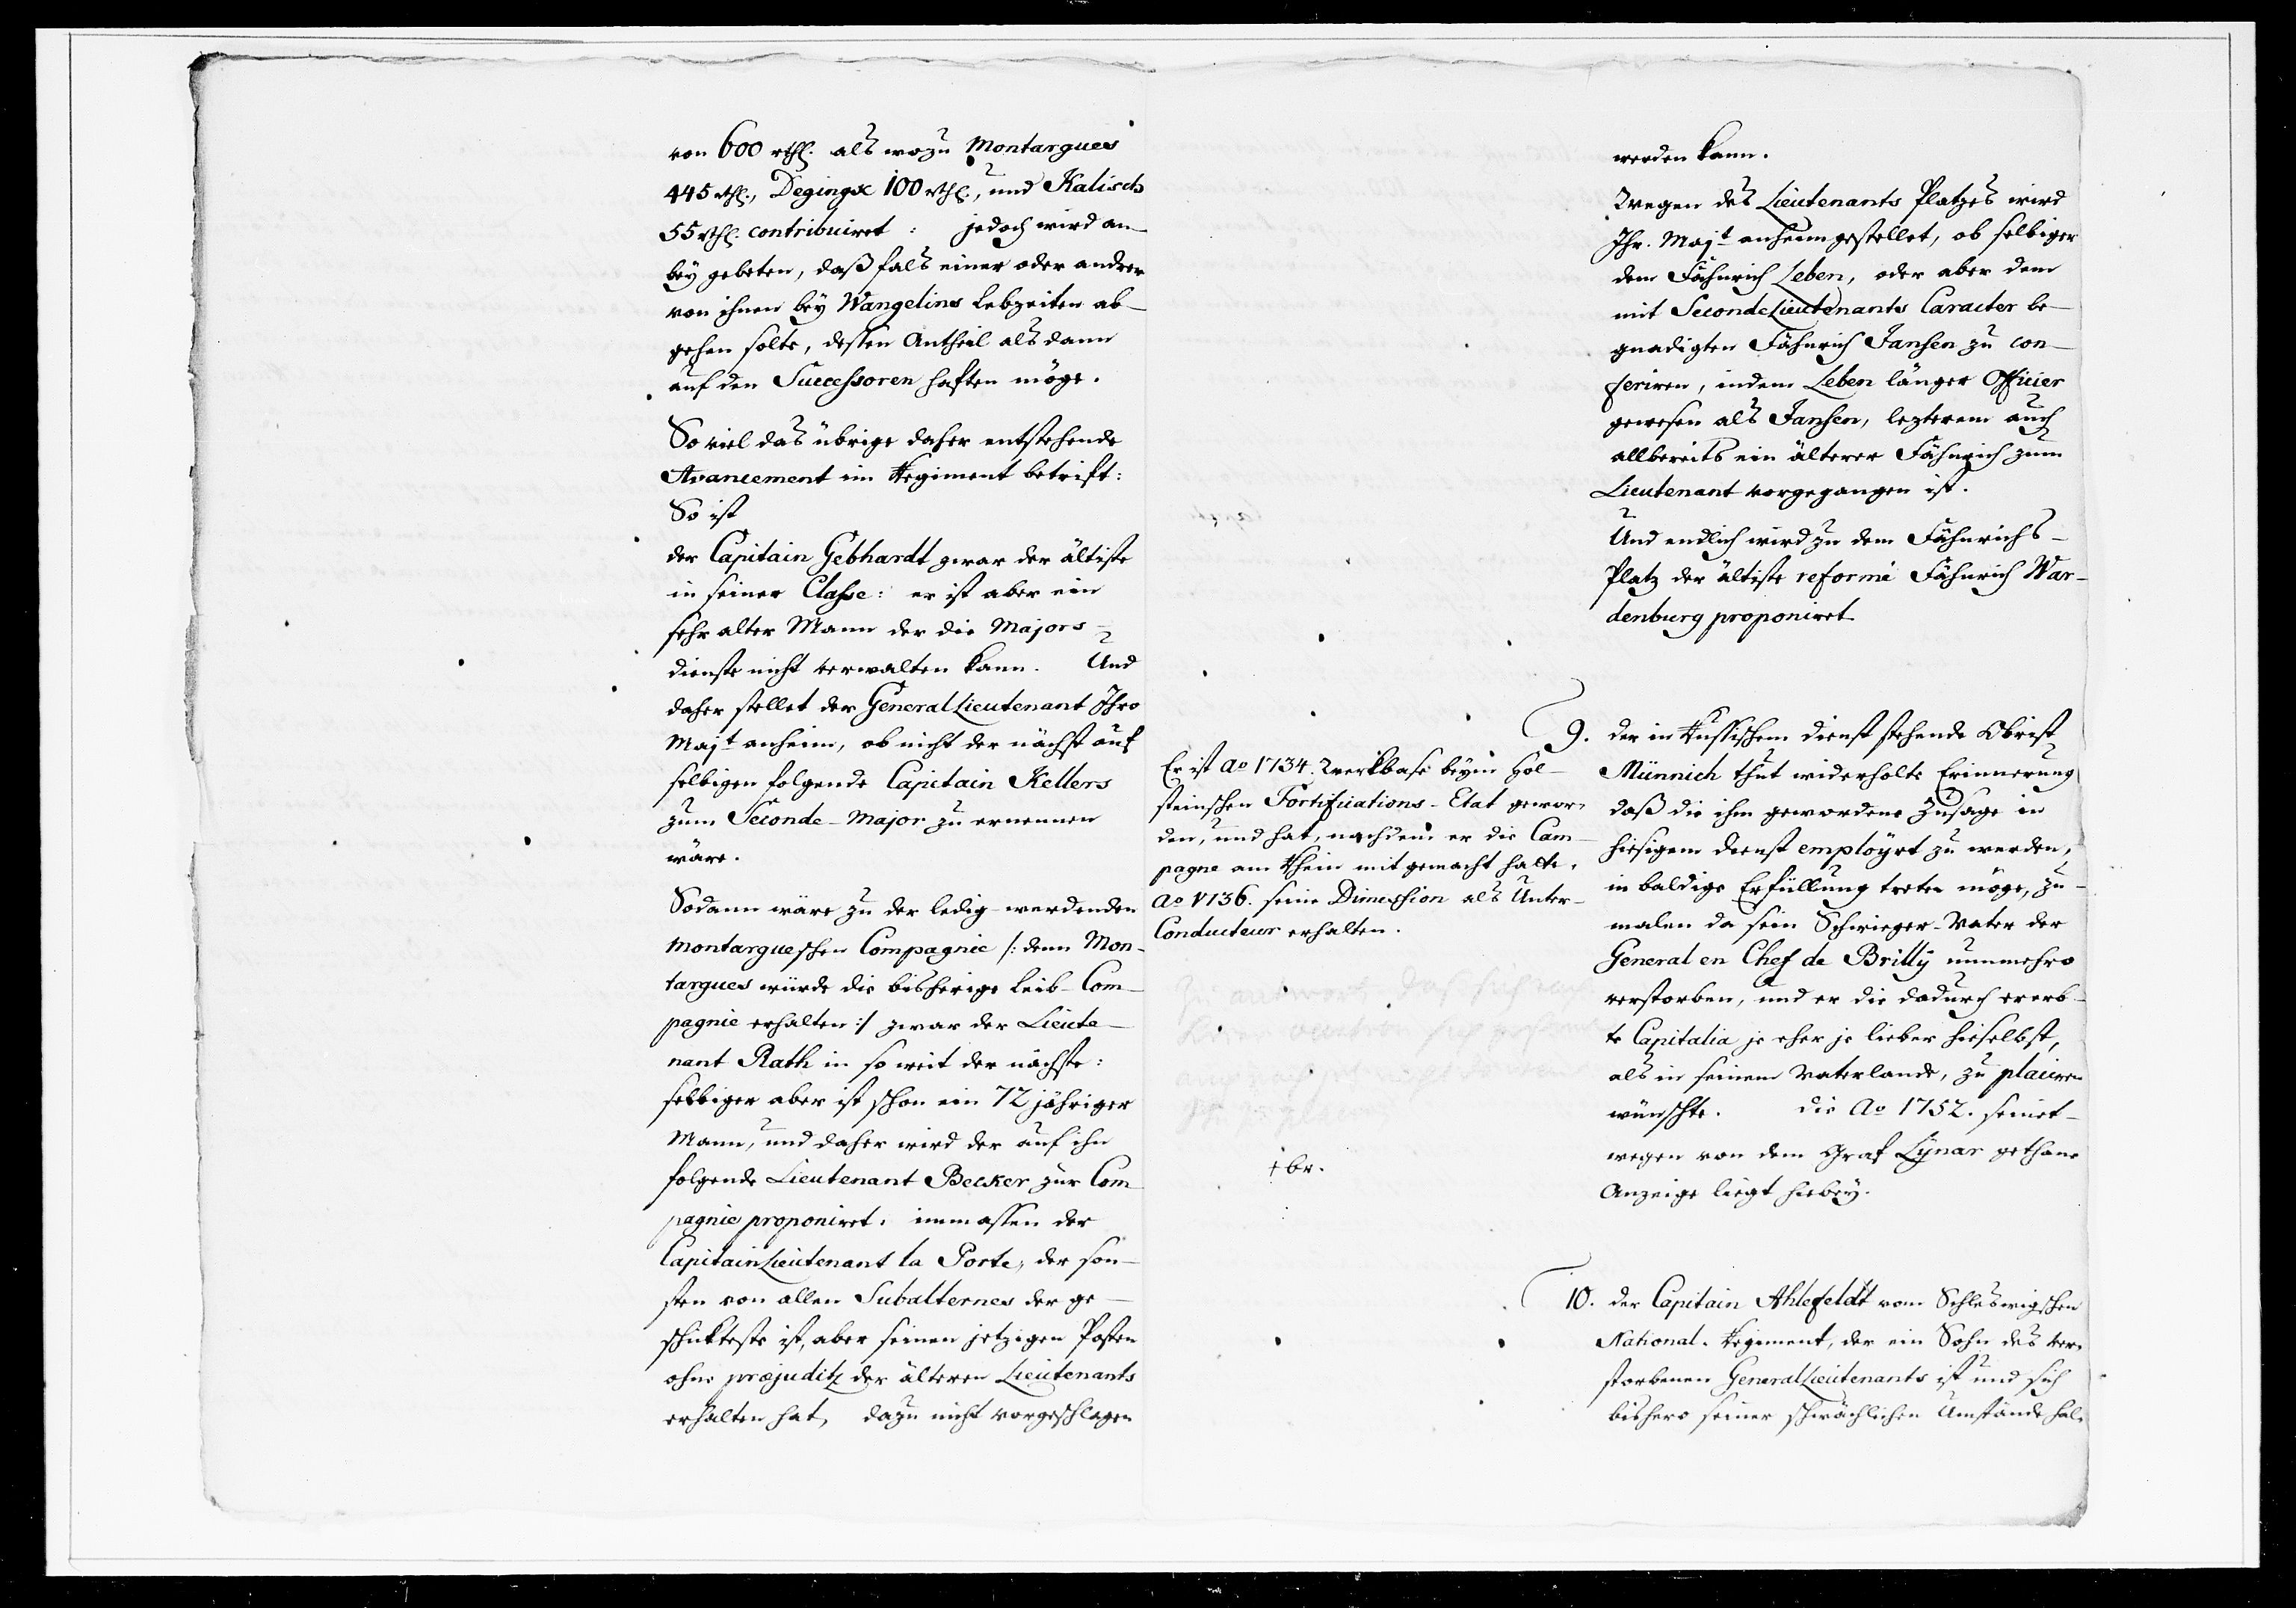 von 600 rthl. als wozu Montargues
445 rthl., Degingk 100 rthl., und Kalisch
55 rthl. contribuiret: jedoch wird an-
bey gebeten, daß fals einer oder andrer
von ihnen bey Wangelins Lebzeiten ab-
gehen solte, dessen Antheil als dann
auf den Successoren haften möge.
So viel das übrige daher entstehende
Avancement im Regiment betrift:
So ist
der Capitain Gebhardt zwar der ältiste
in seiner Classe: er ist aber ein
sehr alter Mann der die Majors-
dienste nicht verwalten kann. Und
daher stellet der General Lieutenant Ihro
Majt anheim, ob nicht der nächst auf
selbigen folgende Capitain Kellers
zum Seconde-Major zu ernennen
wäre.
Sodann wäre zu der ledig werdenden
Montargueschen Compagnie /: denn Mon-
targues würde die bisherige Leib-Com-
pagnie erhalten :/ zwar der Lieute-
nant Rath in so weit der nächste:
selbiger aber ist schon ein 72 jähriger
Mann, und daher wird der auf ihn
folgende Lieutenant Becker zur Com-
pagnie proponiret. immassen der
Capitain Lieutenant la Porte, der son-
sten von allen Subalternes der ge-
schikteste ist, aber seinen jetzigen Posten
ohne præjuditz der älteren Lieutenants
erhalten hat, dazu nicht vorgeschlagen
werden kann.
Wegen des Lieutenants Platzes wird
Ihr. Majt anheimgestellet, ob selbiger
dem Fähnrich Leben, oder aber dem
mit Seconde Lieutenants Caracter be-
gnadigten Fähnrich Jansen zu con-
feriren, indem Leben länger Officier
gewesen als Jansen, lezterem auch
allbereits ein älterer Fähnrich zum
Lieutenant vorgegangen ist.
Und endlich wird zu dem Fähnrichs-
Platz der ältiste reformé Fähnrich War-
denburg proponiret
9. der in Russischem dienst stehende Obrist
Münnich thut widerholte Erinnerung
daß die ihm gewordene Zusage in
hiesigem dienst employrt zu werden,
in baldige Erfüllung treten möge, zu-
malen da sein Schwieger-Vater der
General en Chef de Brilly nunmehro
verstorben, und er die dadurch ererb-
te Capitalia je eher je lieber hieselbst,
als in seinem Vaterlande, zu placiren
wünschte. die Ao 1752. seinet-
wegen von dem Graf Lynar gethane
Anzeige liegt hiebey.
Er ist Ao 1734. Werkbase beym Hol-
steinschen Fortifications-Etat gewor-
den, und hat, nachdem er die Cam-
pagne am Rhein mit gemacht hatte,
Ao 1736. seine Dimission als Unter-
Conducteur erhalten.
+ br.
10. der Capitain Ahlefeldt vom Schleswigschen
National-Regiment, der ein Sohn des ver-
storbenen General Lieutenants ist und sich
bishero seiner schwächlichen Umstände hal-